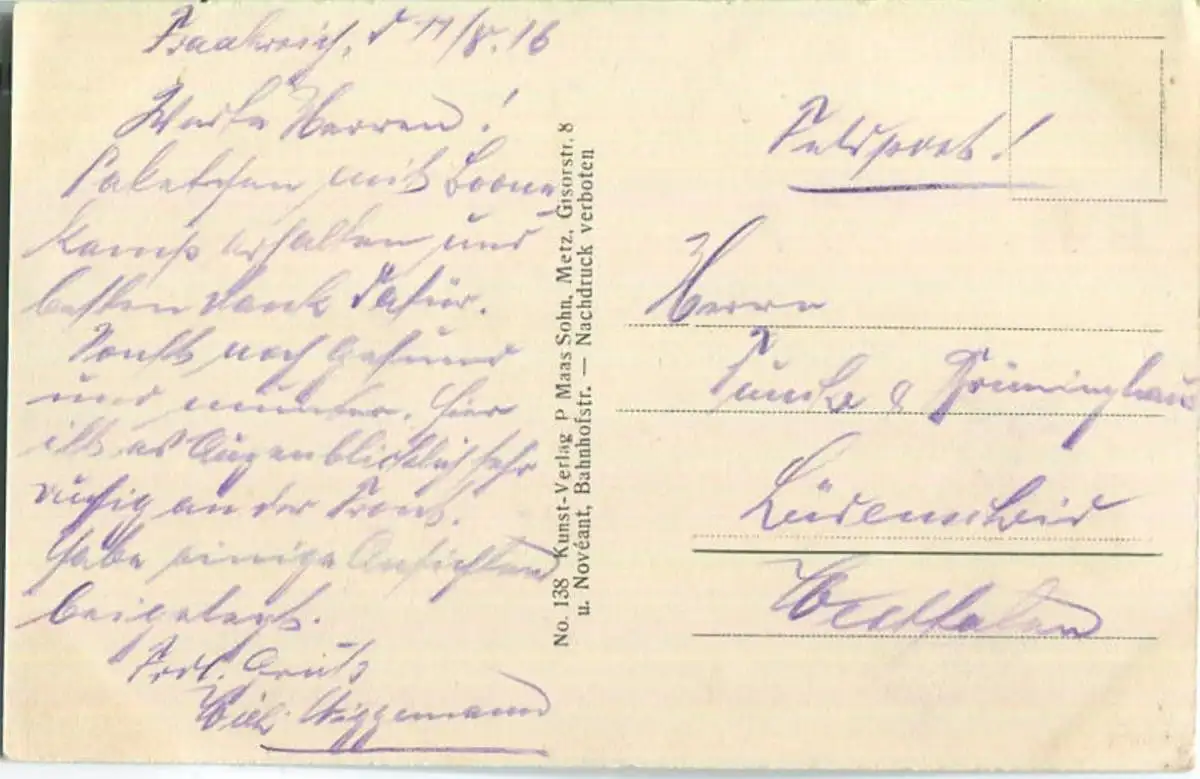 Frankreich, d 11/8. 16
Werte Herren!
Paketchen mit Boone
kamp erhalten und
besten Dank dafür.
Sonst noch Gesund
und munter. Hier
ist es Augenblicklich sehr
ruhig an der Front.
Habe einige Ansichten
beigelegt.
Frdl. Gruß
Wilh. Wiggemann
No. 138 Kunst-Verlag P Maas Sohn, Metz, Gisorstr. 8
u. Novéant, Bahnhofstr. — Nachdruck verboten
Feldpost!
Herrn
Funke & Brüninghaus
Lüdenscheid
Westfalen